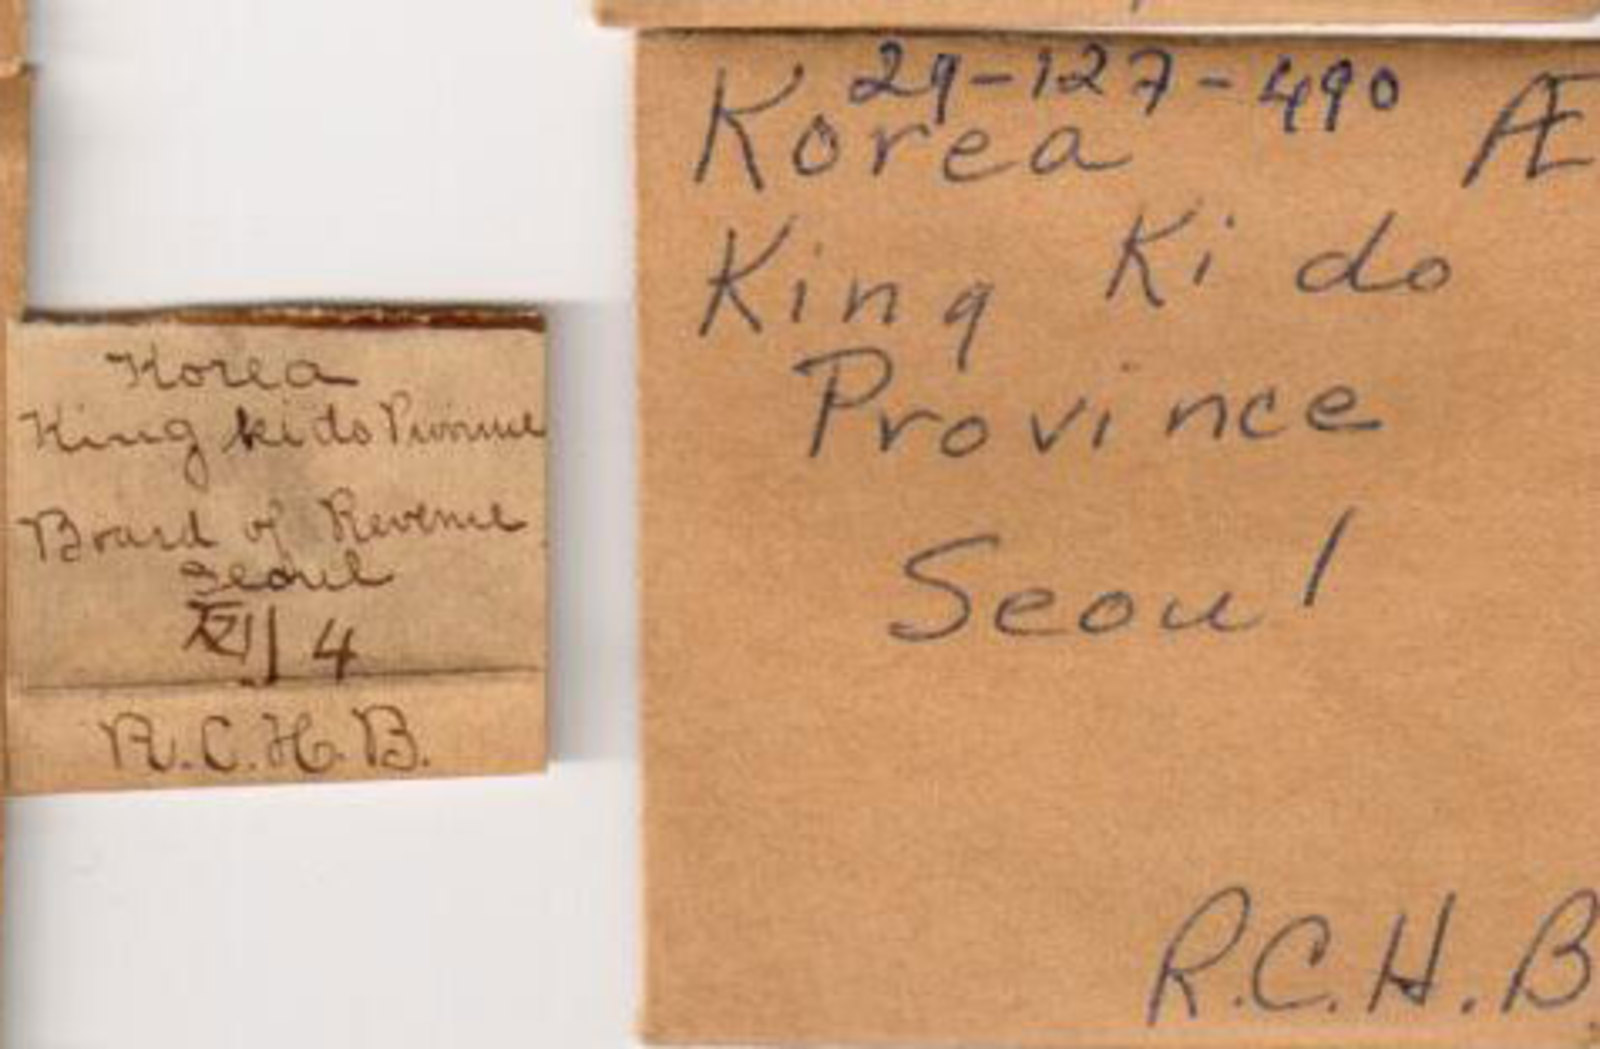 Korea
King ki do Province
Board of Revenue
Seoul
4
R.C.H.B.
29-127-490
Korea Æ
King Ki do
Province
Seoul
R.C.H.B.